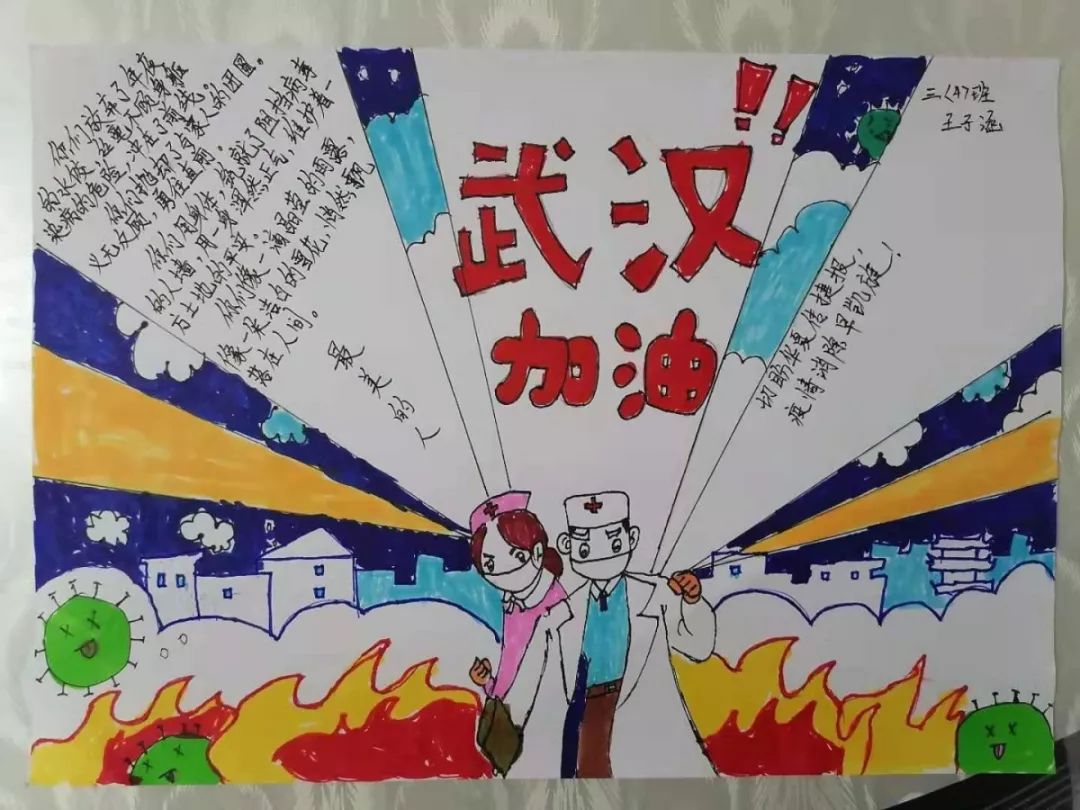 武汉!!
加油
三(4)班
王子涵
你们放弃了年夜
的欢愉,毫不顾
染病的危险,冲在了前线。
你们抛却了与家人的团圆。
义无反顾,勇往直前
你们是身体,筑就了阻挡病毒
的人墙,用一身浩然正气,维护着一
方土地的平安。
你们像一滴晶莹的雨露,
像一朵洁白的雪花,悄然飘
落在人间。
最美的人
切盼华夏传捷报,
疫情消除早凯旋!